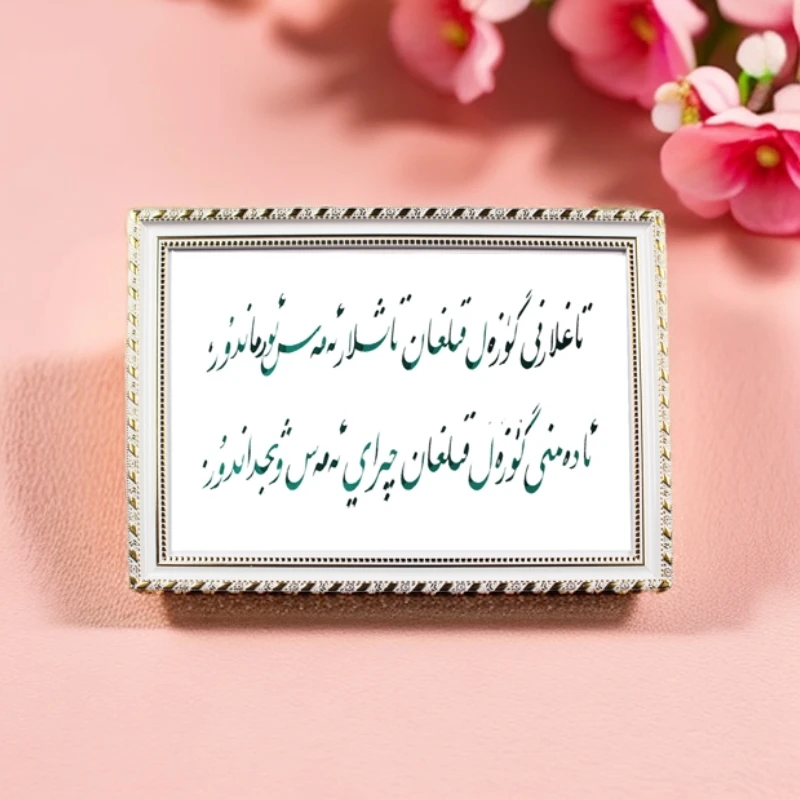 تاغلارنى گۈزەل قىلغان تاشلار ئەمەس ئورماندۇر،
ئادەمنى گۈزەل قىلغان چىراي ئەمەس ۋىجداندۇر.